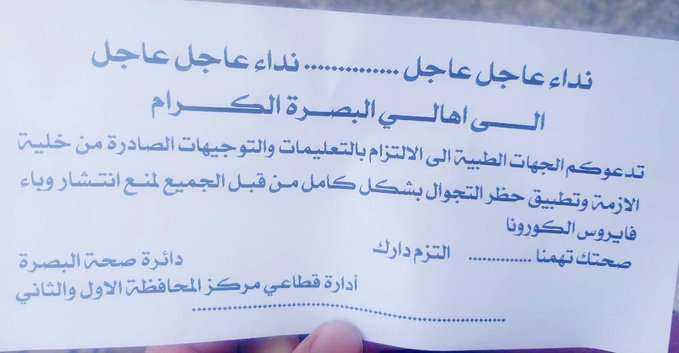 نداء عاجل عاجل .............. نداء عاجل عاجل
الـى اهالـي البصـرة الكـرام
تدعوكم الجهات الطبية الى الالتزام بالتعليمات والتوجيهات الصادرة من خلية
الازمة وتطبيق حظر التجوال بشكل كامل من قبل الجميع لمنع انتشار وباء
فايروس الكورونا
صحتك تهمنا .............. التزم دارك
دائرة صحة البصرة
أدارة قطاعي مركز المحافظة الاول والثاني
..............................................